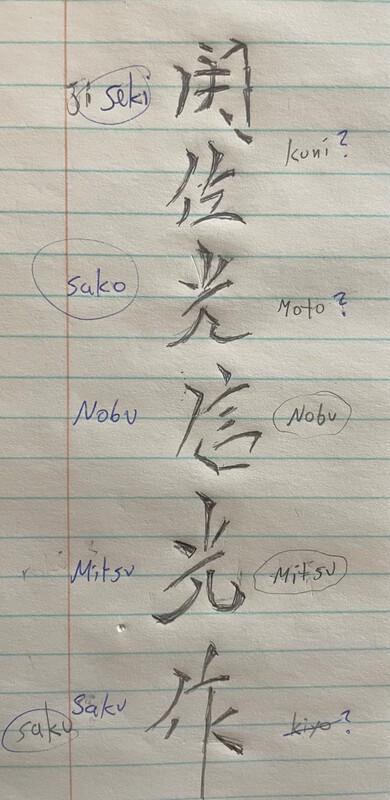 seki
関
kuni?
住
sako
光
Moto?
Nobu
信
Nobu
Mitsu
光
Mitsu
saku
Saku
作
kiyo?